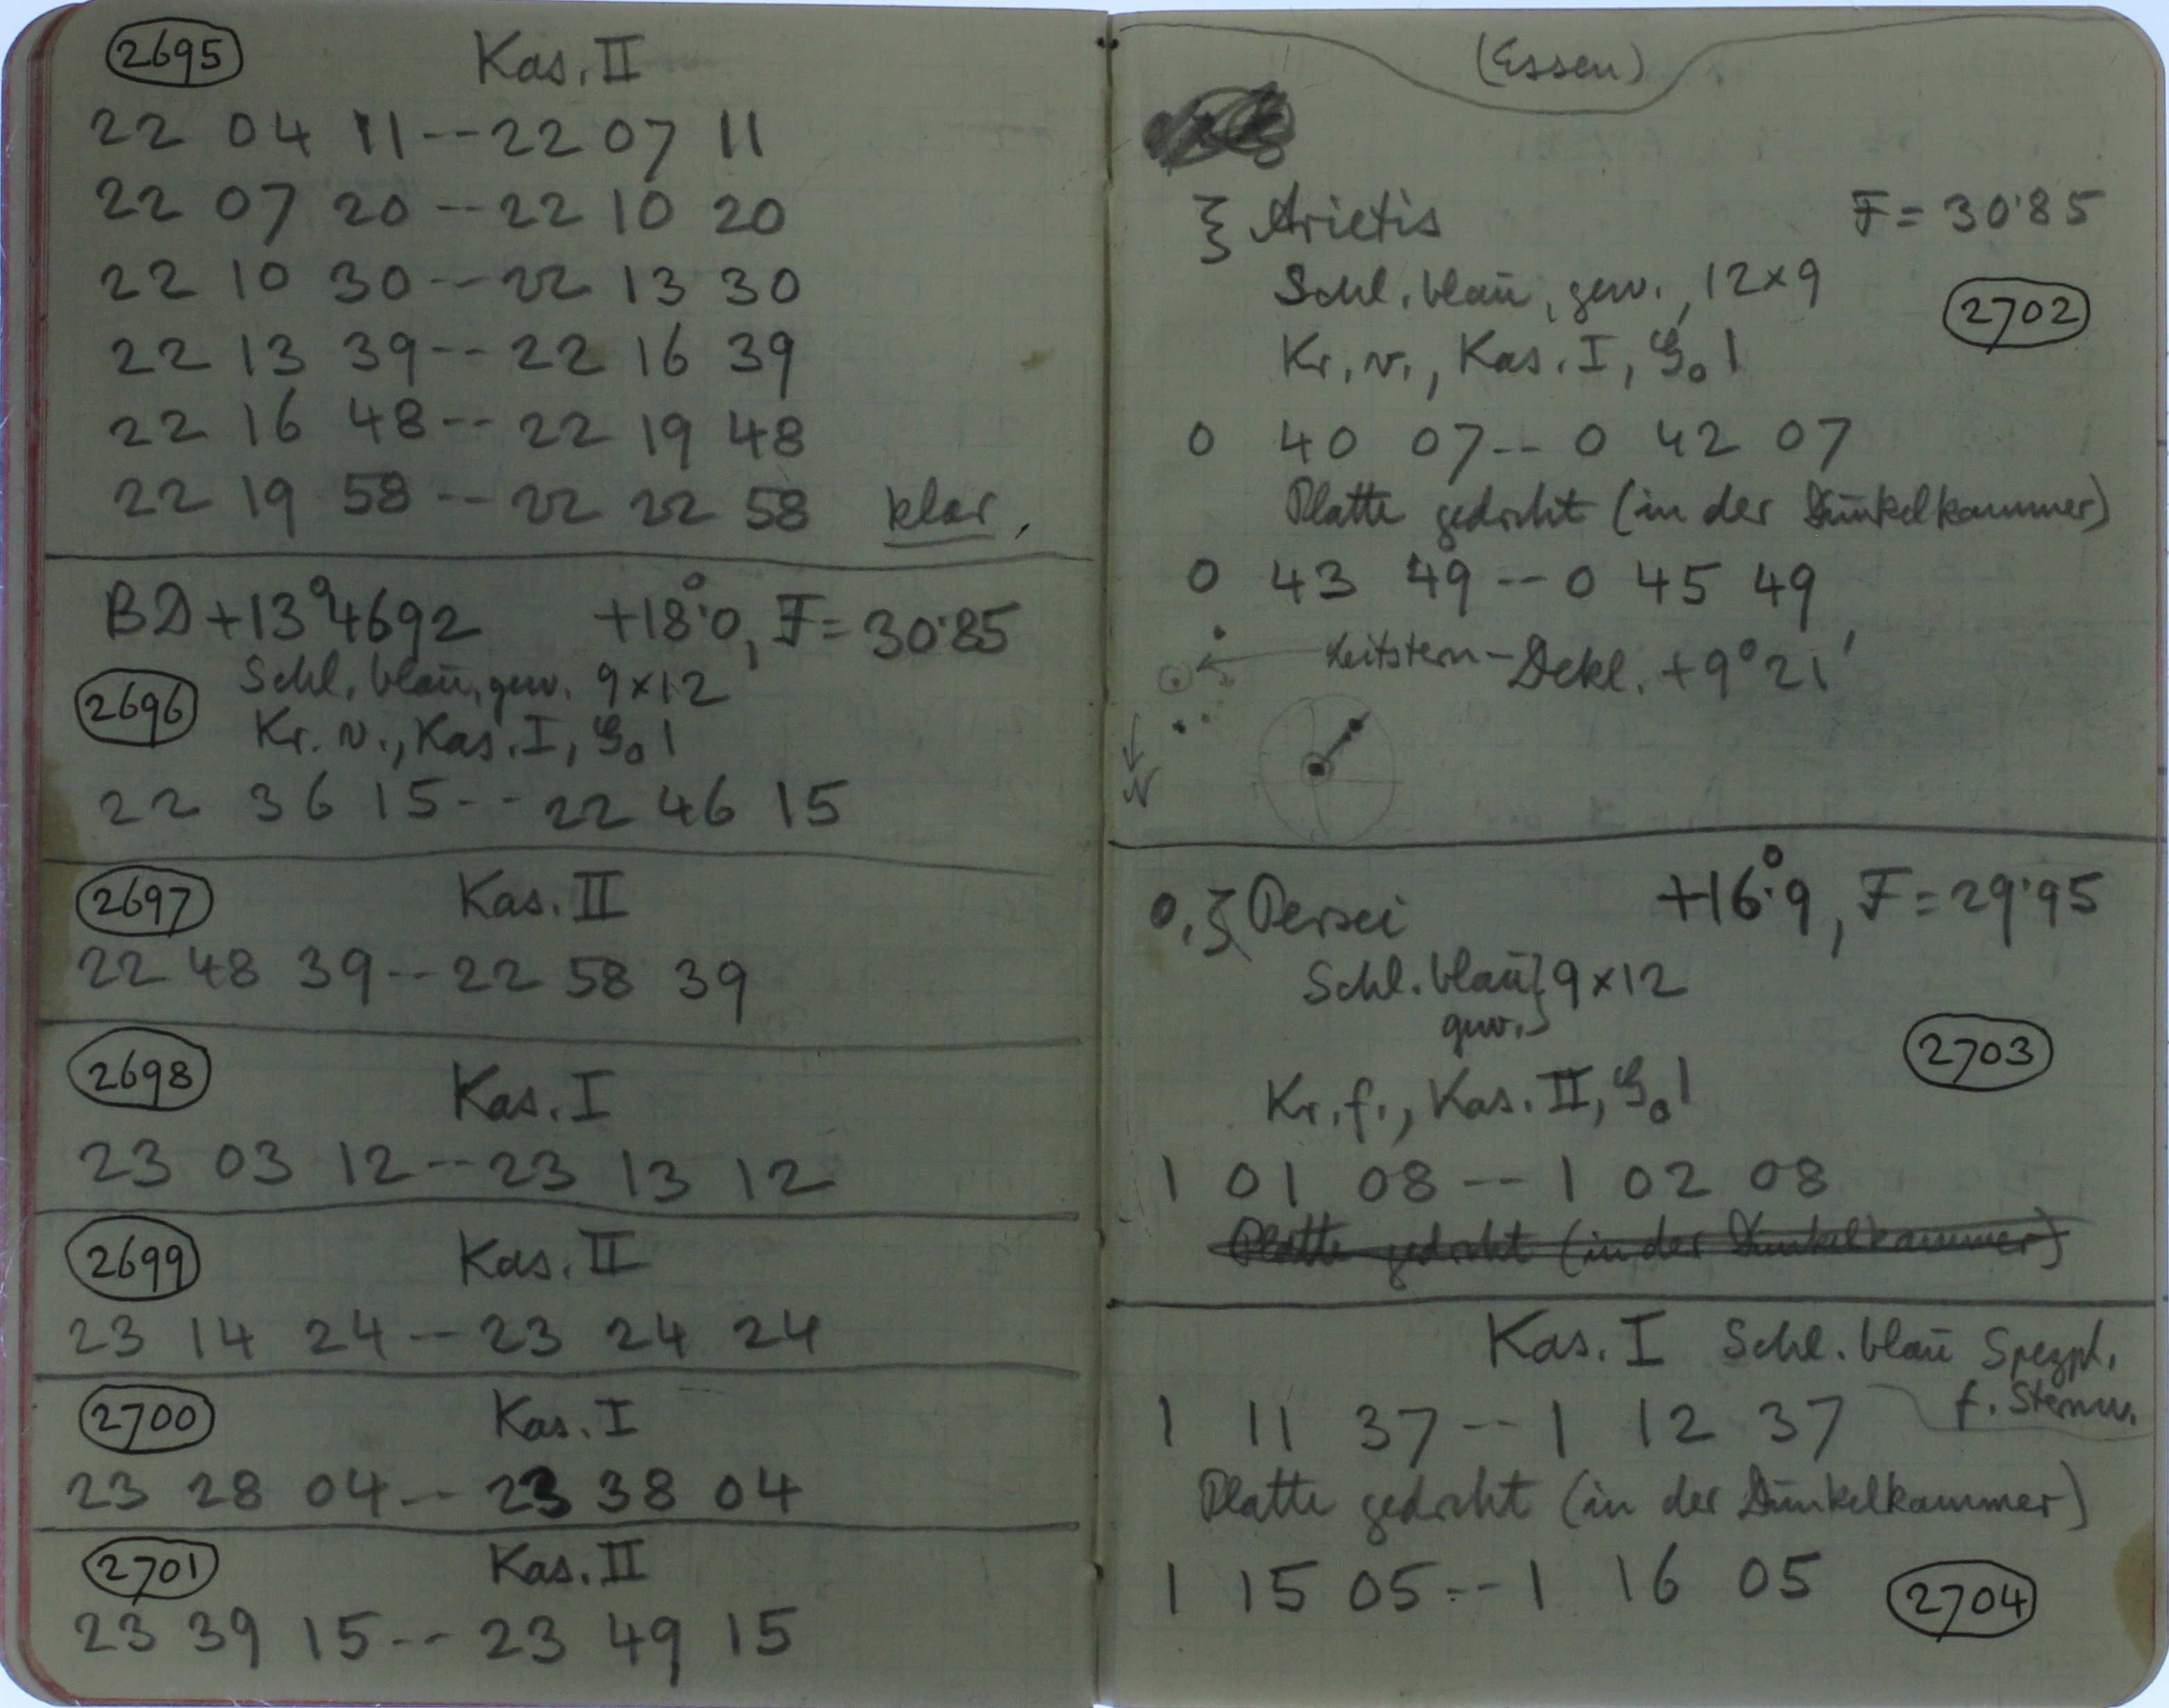 2695 Kas. II
22 04 11 -- 22 07 11
22 07 20 -- 22 10 20
22 10 30 -- 22 13 30
22 13 39 -- 22 16 39
22 16 48 -- 22 19 48
22 19 58 -- 22 22 58 klar.
BD+13°4692 +18°.0, F=30.85
Schl. blau, gew. 9×12
2696
Kr. v., Kas. I, G₀ 1
22 36 15 -- 22 46 15
2697 Kas. II
22 48 39 -- 22 58 39
2698 Kas. I
23 03 12 -- 23 13 12
2699 Kas. II
23 14 24 -- 23 24 24
2700 Kas. I
23 28 04 -- 23 38 04
2701 Kas. II
23 39 15 -- 23 49 15
(Essen)
ξ Arietis F=30.85
Schl. blau, gew., 12×9
2702
Kr. v., Kas. I, G₀ 1
0 40 07 -- 0 42 07
Platte gedreht (in der Dunkelkammer)
0 43 49 -- 0 45 49
Leitstern-Dekl. +9°21'
N
ο, ζ Persei +16°.9, F=29.95
Schl. blau } 9×12
gew.
2703
Kr. f., Kas. II, G₀ 1
1 01 08 -- 1 02 08
Platte gedreht (in der Dunkelkammer)
Kas. I Schl. blau Spezpl.
f. Sternw.
1 11 37 -- 1 12 37
Platte gedreht (in der Dunkelkammer)
1 15 05 -- 1 16 05
2704